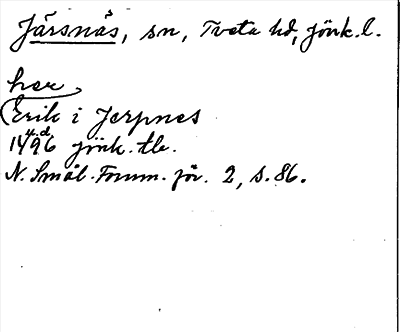 Järsnäs, sn, Tveta hd, Jönk. l.
her
(Erik i Jerpnes
u.d.
1496 jönk. tb.
N. Smål. Fornm. för. 2, s. 86.